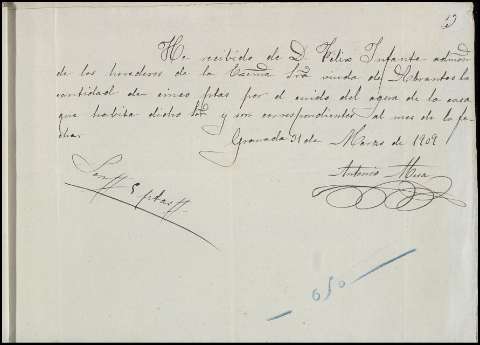 He recibido de D. Felix Infante admon
de los herederos de la Excma Sra viuda de Abrantes la
cantidad de cinco ptas por el cuido del agua de la casa
que habita dicho Sr. y son correspondientes al mes de la fe-
cha.
Granada 31 de Marzo de 1909
Antonio Mesa
Son 5 ptas
650